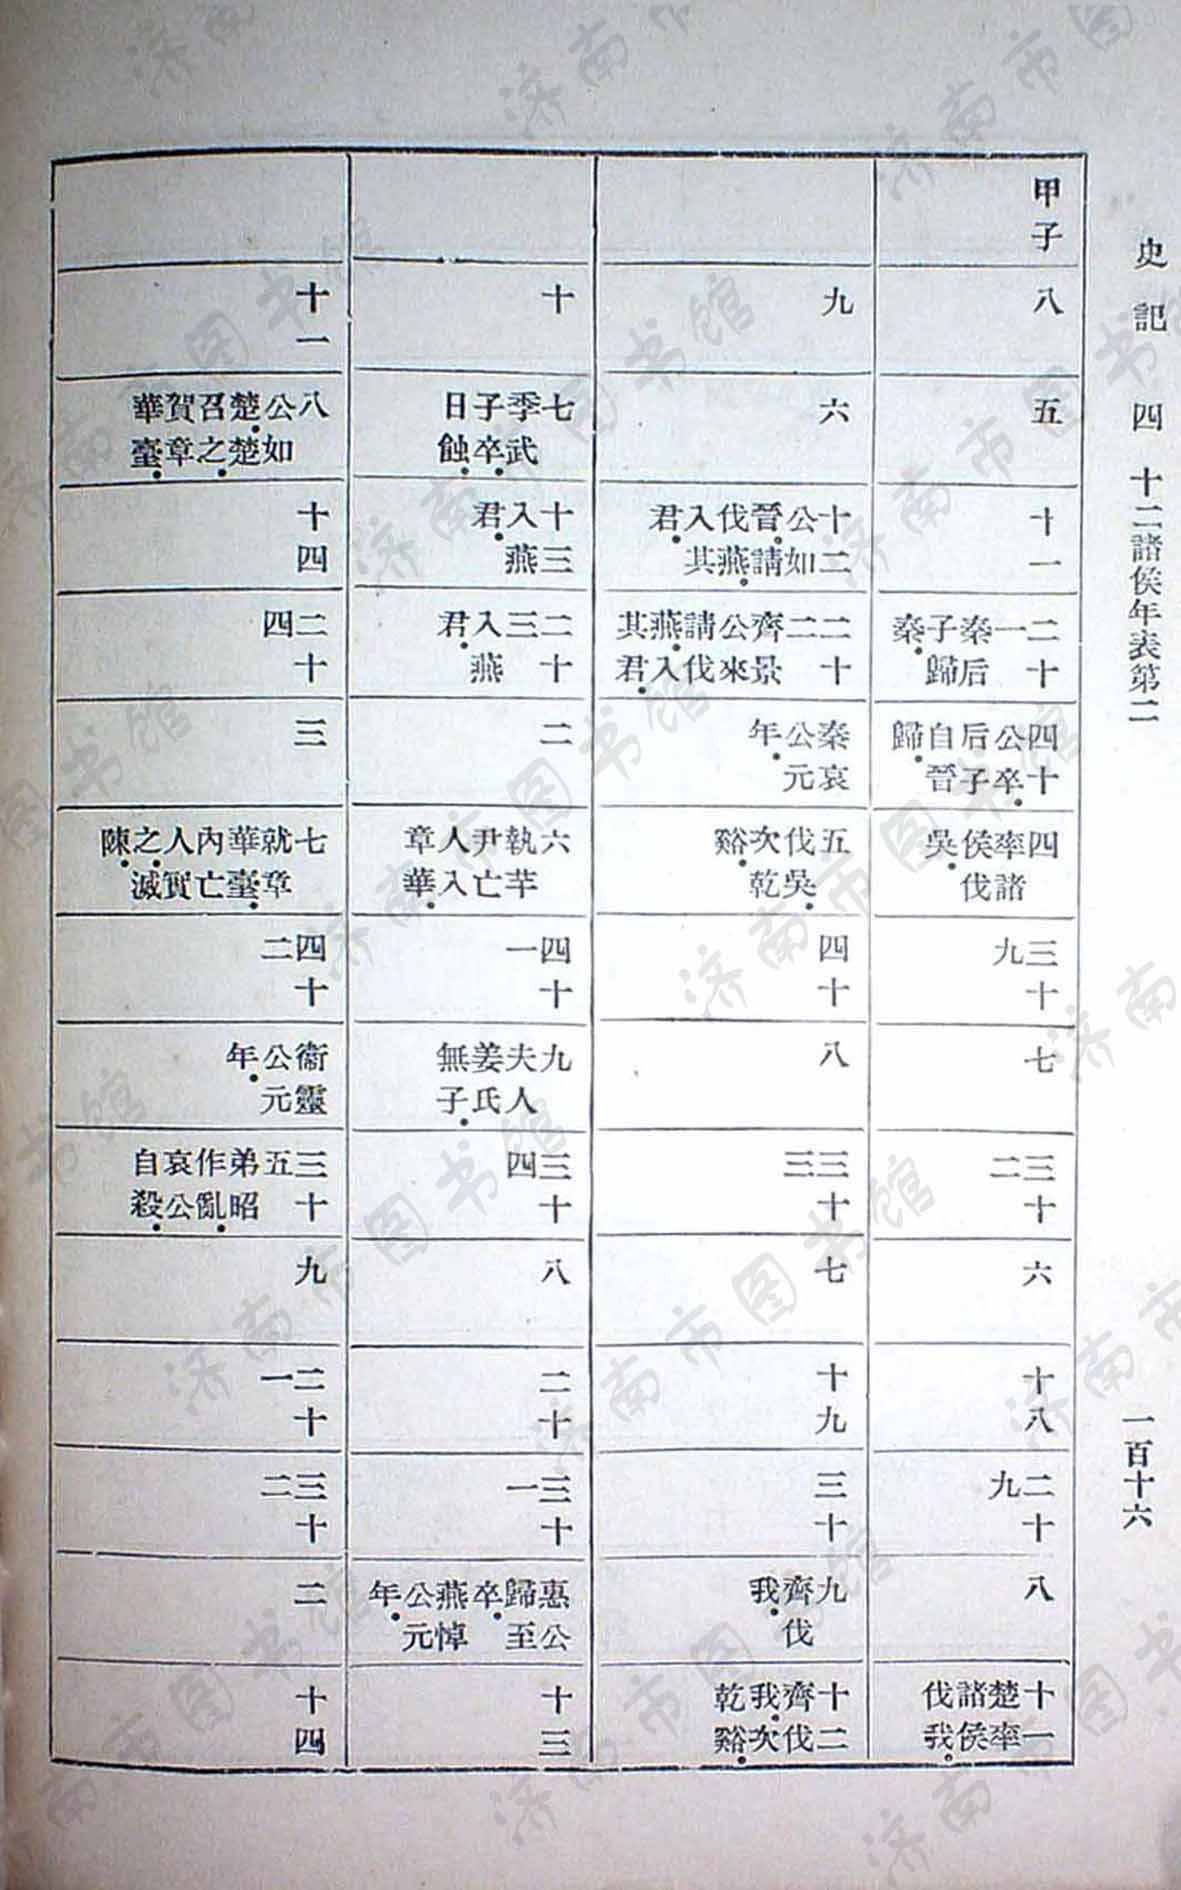 史記 四 十二諸侯年表第二 一百十六
甲子
八
五
十一
二十一秦后子歸秦
四十公卒后子自晉歸
四率諸侯伐吳
三十九
七
三十二
六
十八
二十九
八
十一楚率諸侯伐我
九
六
十二公如晉請伐燕入其君
二十二齊景公來請伐燕入其君
秦哀公元年
五伐吳次乾谿
四十
八
三十三
七
十九
三十
九齊伐我
十二齊伐我次乾谿
十
七季武子卒日蝕
十三入燕君
二十三入燕君
二
六執芋尹亡人入章華
四十一
九夫人姜氏無子
三十四
八
二十
三十一
惠公歸至卒燕悼公元年
十三
十一
八公如楚楚召之賀章華臺
十四
二十四
三
七就章華臺內亡人實之滅陳
四十二
衞靈公元年
三十五弟昭作亂哀公自殺
九
二十一
三十二
二
十四
济南市图书馆